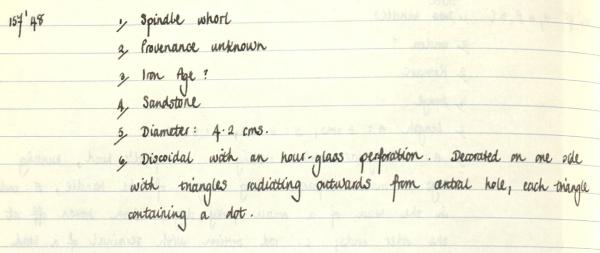 157'48 1, Spindle whorl
2, Provenance unknown
3, Iron Age ?
4, Sandstone
5, Diameter: 4.2 cms.
6, Discoidal with an hour-glass perforation. Decorated on one side
with triangles radiatting outwards from central hole, each triangle
containing a dot.